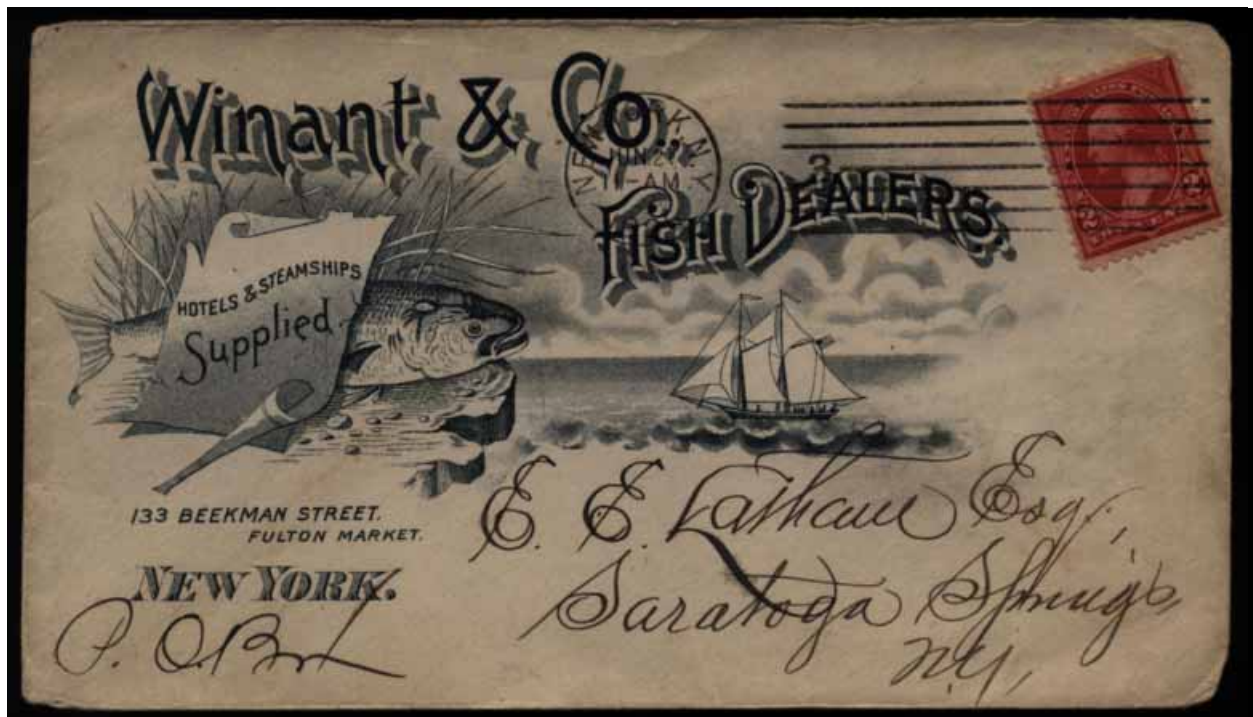 Winant & Co.
Fish Dealers.
NEW YORK N.Y.
JUN 27
11-AM
3
HOTELS & STEAMSHIPS
Supplied.
133 BEEKMAN STREET.
FULTON MARKET.
NEW YORK.
P. O. Box
E. E. Latham Esq.,
Saratoga Springs,
N.Y.,
2 2